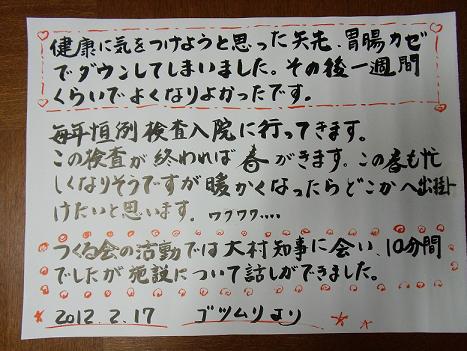 健康に気をつけようと思った矢先、胃腸カゼ
でダウンしてしまいました。その後一週間
くらいでよくなりよかったです。
毎年恒例検査入院に行ってきます。
この検査が終われば春がきます。この春も忙
しくなりそうですが暖かくなったらどこかへ出掛
けたいと思います。ワクワク....
つくる会の活動では大村知事に会い、10分間
でしたが施設について話しができました。
2012.2.17 ゴツムリより